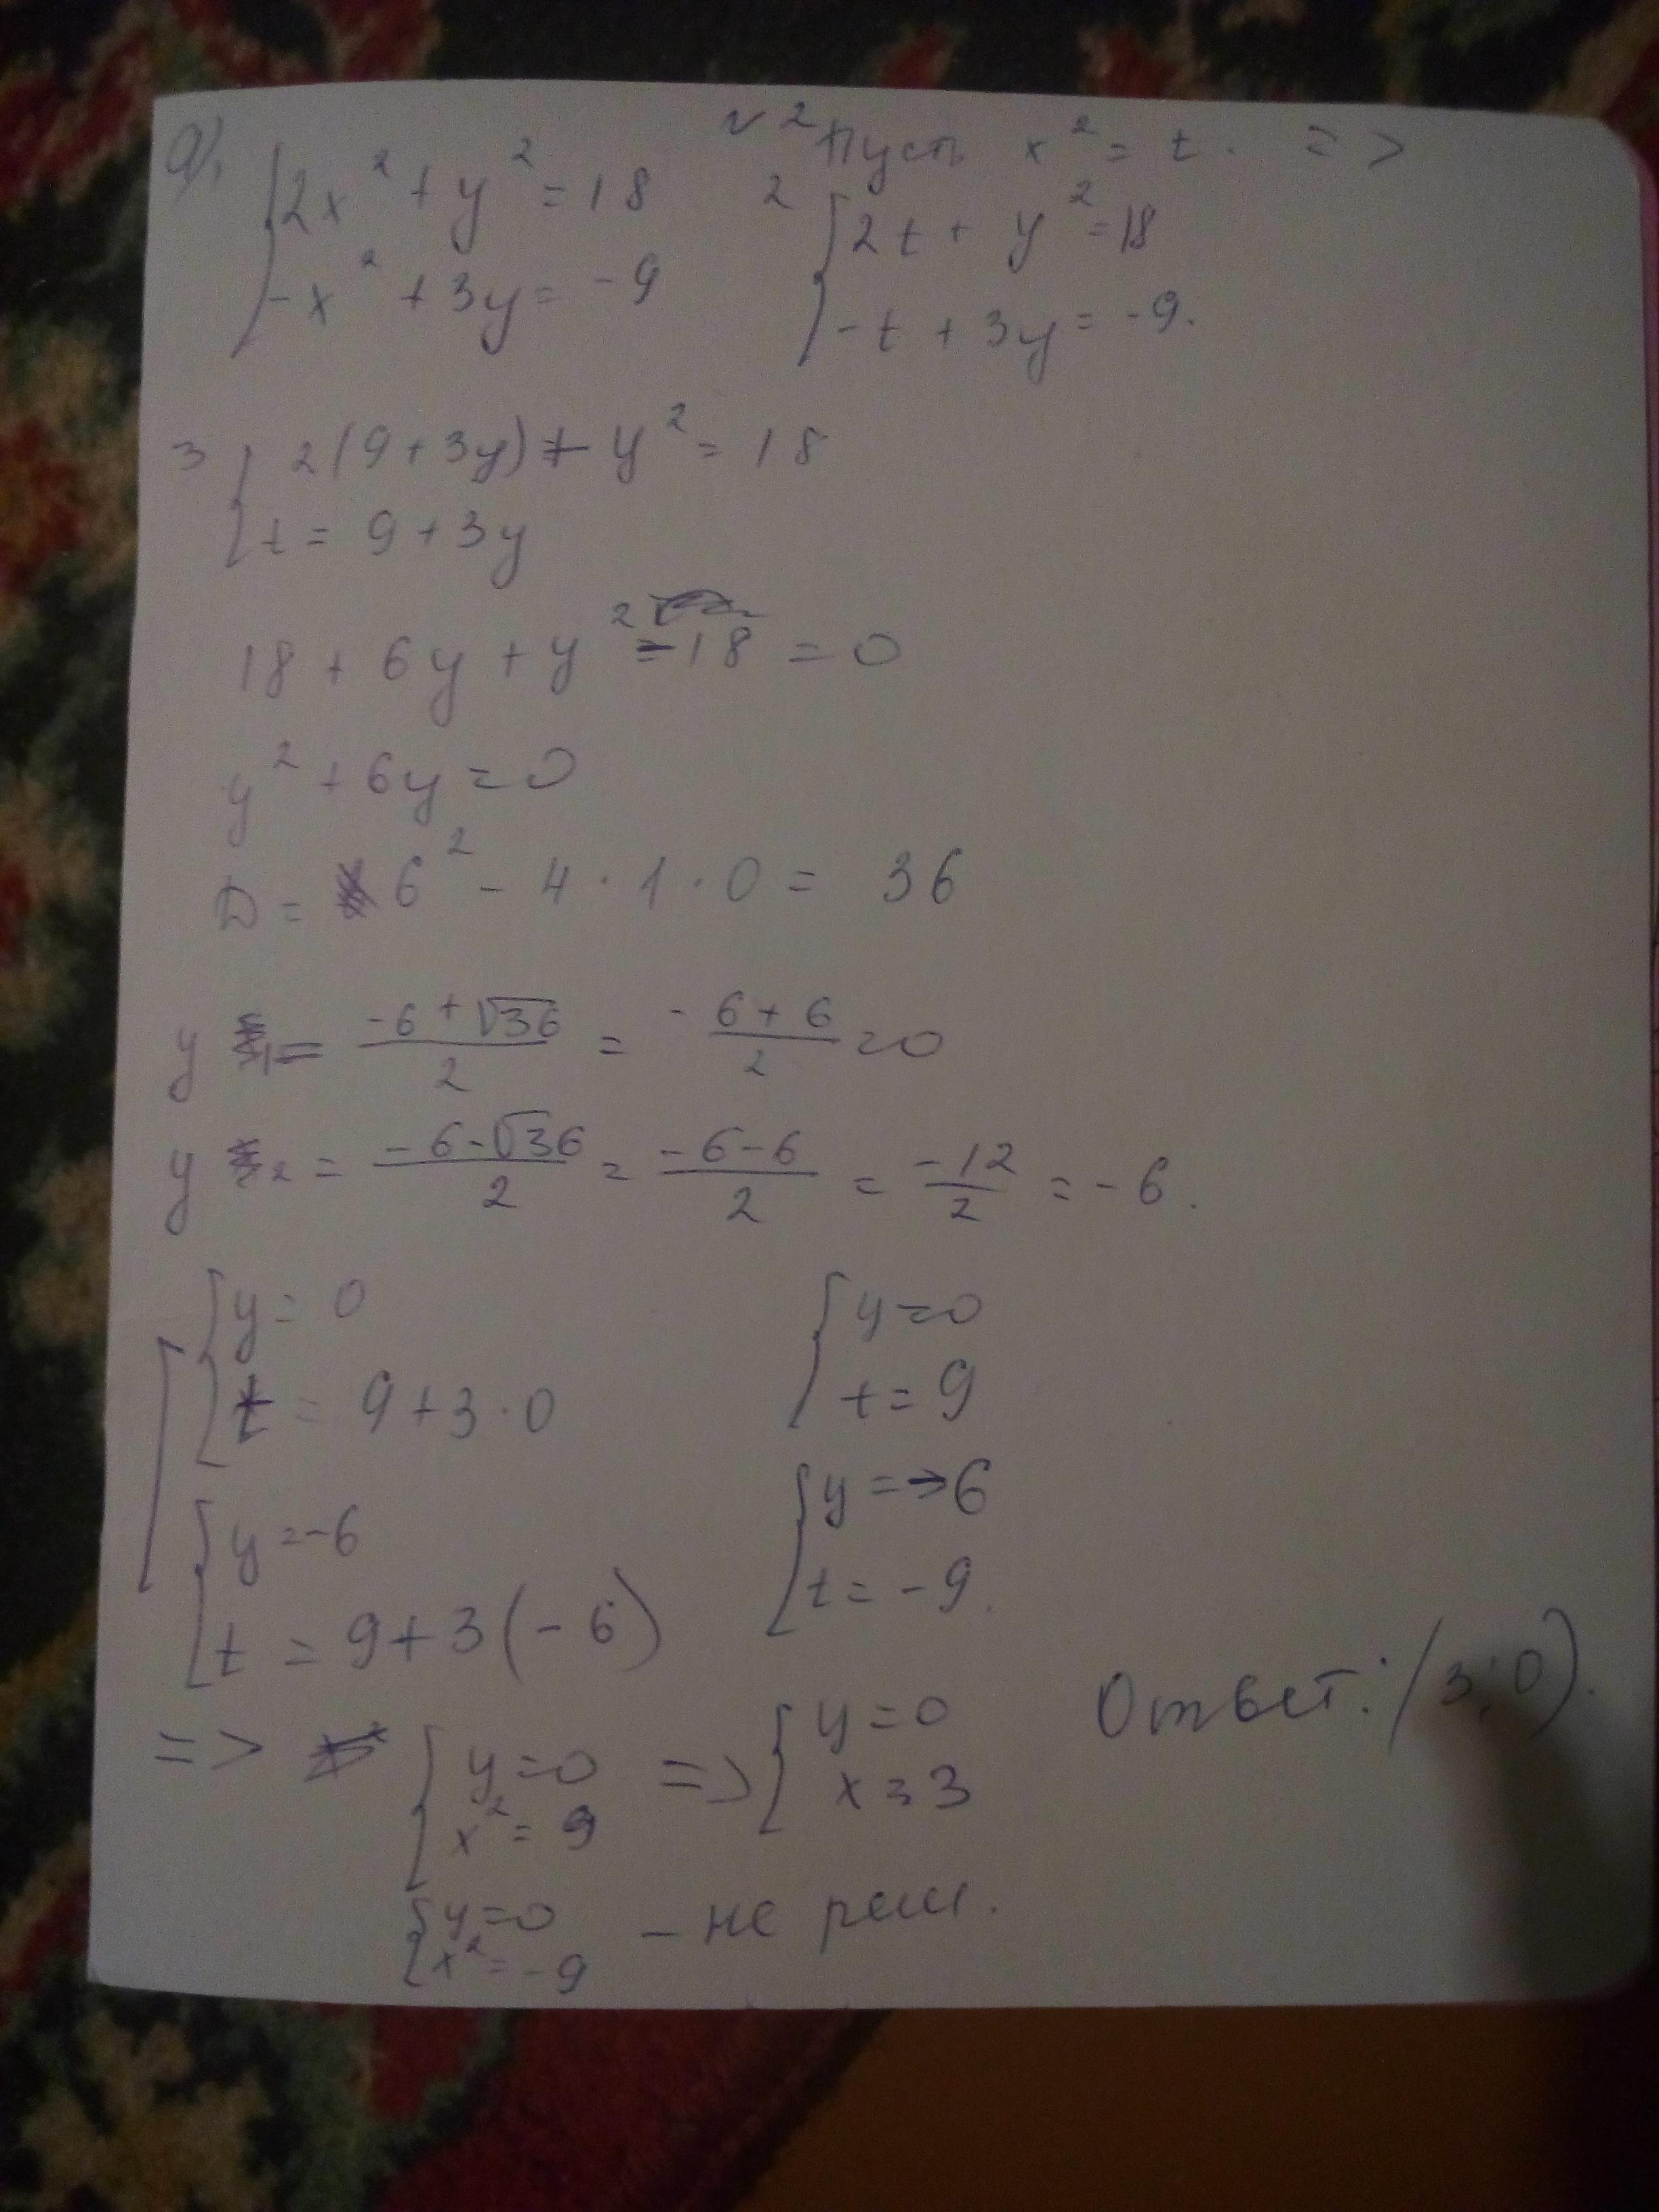 №2
а)
{2x² + y² = 18
-x² + 3y = -9
Пусть x² = t. =>
2 {2t + y² = 18
-t + 3y = -9.
3 { 2(9 + 3y) + y² = 18
t = 9 + 3y
18 + 6y + y² - 18 = 0
y² + 6y = 0
D = 6² - 4 · 1 · 0 = 36
y 1 = (-6 + √36)/2 = - (6 + 6)/2 = 0
y 2 = (-6 - √36)/2 = (-6 - 6)/2 = -12/2 = -6.
[ {y = 0
t = 9 + 3 · 0
{y = -6
t = 9 + 3(-6)
{y = 0
t = 9
{y = -6
t = -9.
=> {y = 0
x² = 9
=> {y = 0
x = 3
{y = 0
x² = -9
- не реш.
Ответ: (3; 0).